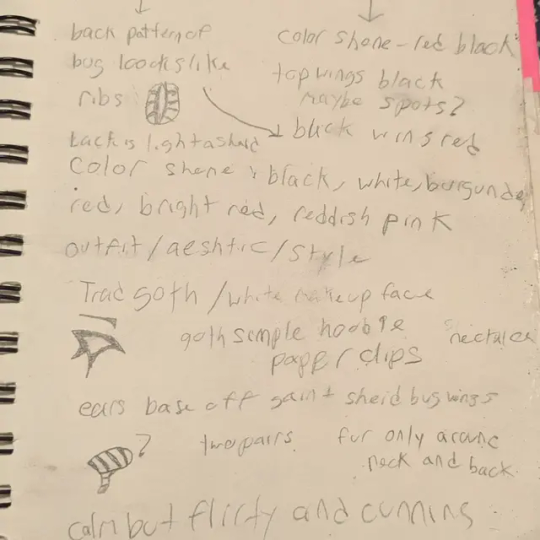 back pattern of
bug loocks like
ribs
color shone - red black
top wings black
maybe spots?
back wins red
back is light
color shone: black, white, burgunde
red, bright red, reddish pink
outfit/aeshtic/style
Trad goth /white makeup face
goth simple hoobie
paper clips
ears base off gaint sheid bug wings
?
two pairs
fur only arounc
neck and back.
calm but flirty and cunning